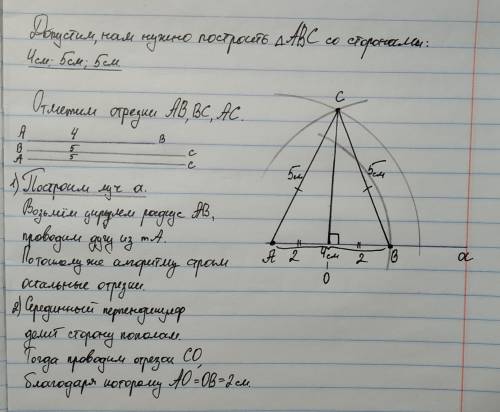 Допустим, нам нужно построить △ABC со сторонами:
4см; 5см; 5см
Отметим отрезки AB, BC, AC.
A 4 B
B 5 C
A 5 C
1) Построим луч a.
Возьмём циркулем радиус AB,
проводим дугу из т A.
По такому же алгоритму строим
остальные отрезки.
2) Серединный перпендикуляр
делит сторону пополам.
Тогда проводим отрезок CO,
благодаря которому AO=OB=2см.
C
5см 5см
A 2 4см 2 B a
O